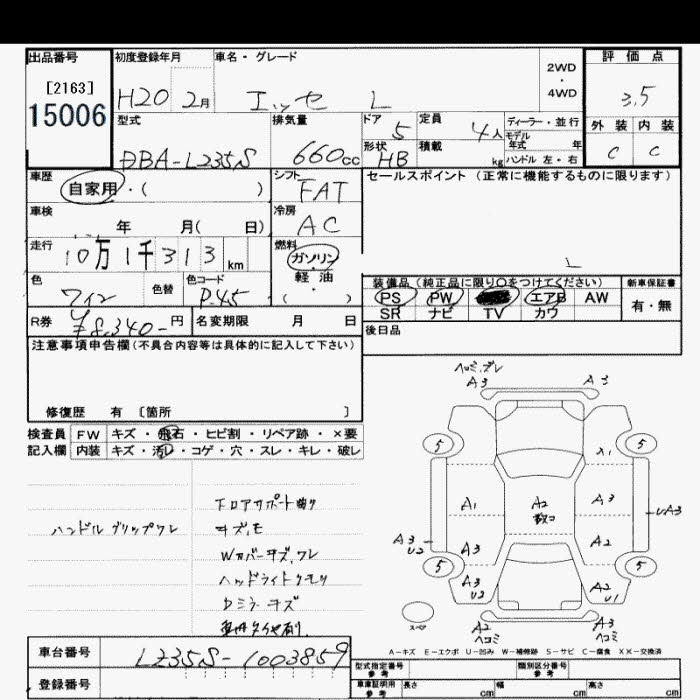 出品番号 初度登録年月 車名・グレード 2WD・4WD 評価点
[2163]
15006
H20 2月 エッセ L 3.5
型式 排気量 ドア 定員 ディーラー・並行 外装 内装
DBA-L235S 660cc 5 4人 モデル年式 年 C C
形状 HB 積載 kg ハンドル 左・右
車歴 シフト セールスポイント (正常に機能するものに限ります)
自家用・( ) FAT
車検 冷房
年 月( 日) AC
走行 燃料
10万1千313km ガソリン・軽油 L
色 色替 色コード ( ) 装備品 (純正品に限り○をつけてください) 新車保証書
ワイン P45 PS PW エアB AW 有・無
SR ナビ TV カワ
R券 ¥8,340-円 名変期限 月 日 後日品
注意事項申告欄(不具合内容等は具体的に記入して下さい)
修復歴 有 [箇所 ]
検査員 FW キズ・飛石・ヒビ割・リペア跡・×要
記入欄 内装 キズ・汚レ・コゲ・穴・スレ・キレ・破レ
ハンドルグリップワレ
キズ、モ
Wカバーキズ、ワレ
ヘッドライトクモリ
Dミラーキズ
A3 A3
5 5
X1
A1 A2 A3
UA3
A3 U2 A3 A2
5 5
A3 U2 A2 U1
スペア
A2 ヘコミ A3 ヘコミ
A-キズ E-エクボ U-凹み W-補修跡 S-サビ C-腐食 XX-交換済
車台番号 L235S-1003859
登録番号
型式指定番号 参考 類別区分番号 参考
車庫証明用 参考 長さ cm 幅 cm 高さ cm